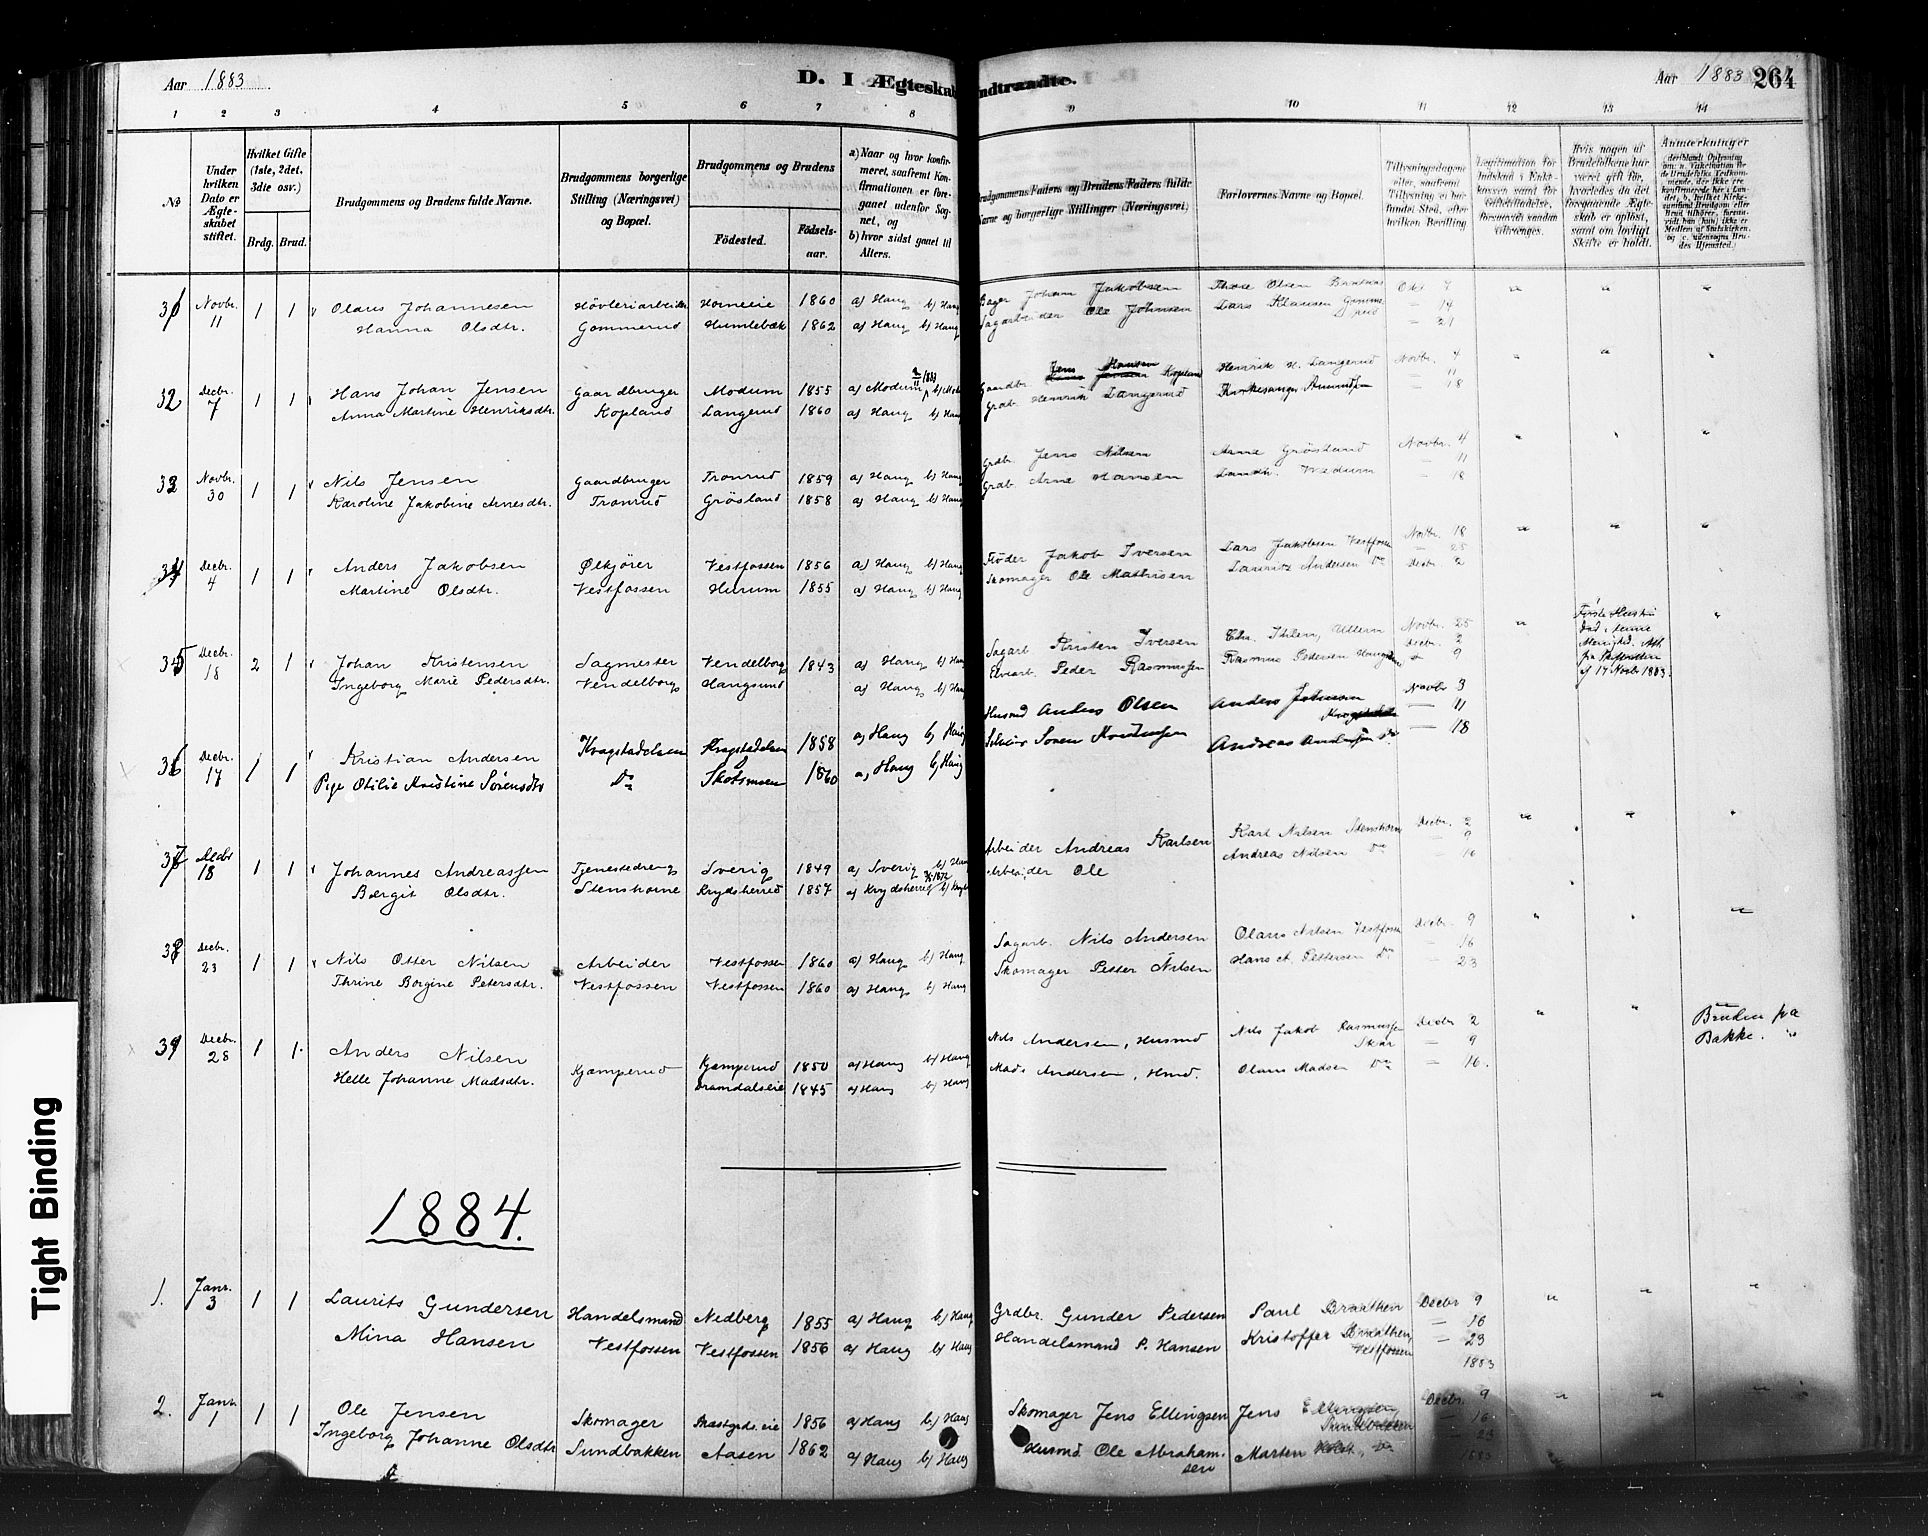 Aar 1883. D. I Ægteskab Indtraadte. Aar 1883 264
1 2 3 4 5 6 7 8 9 10 11 12 13 14
No
Under hvilken Dato er Ægteskabet stiftet.
Hvilket Gifte (1ste, 2det, 3die osv.)
Brdg. Brud.
Brudgommens og Brudens fulde Navne.
Brudgommens borgerlige Stilling (Næringsvei) og Bopæl.
Brudgommens og Brudens
Fødested. Fødsels-aar.
a) Naar og hvor konfirmeret, saafremt Konfirmationen er foregaaet udenfor Sognet, og
b) hvor sidst gaaet til Alters.
Brudgommens Faders og Brudens Faders fulde Navne og borgerlige Stillinger (Næringsvei)
Forlovernes Navne og Bopæl.
Tillysningsdagene eller, saafremt Tillysning ei har fundet Sted, efter hvilken Bevilling.
Hvis nogen af Brudefolkene har været gift før, hvorledes da det foregaaende Ægteskab er opløst, samt om lovligt Skifte er holdt.
Anmærkninger
31 Novbr. 11 1 1 Olaus Johannesen Høvleriarbeider Horneie 1860 a) Haug b) Haug Bager Johan Jakobsen Thore Olsen Oktr. 7 " " "
Hanna Olsdtr. Gommerud Humlebæk 1862 a) Haug b) Haug Sagarbeider Ole Johnsen Lars Klausen — 14
— 21
32 Decbr. 7 1 1 Hans Johan Jensen Gaardbruger Modum 1855 a) Modum Gaardbr. Jens Hansen Kopland Henrik H. Langerud Novbr. 4 " " "
Anna Martine Henriksdtr. Kopland Langerud 1860 a) Haug b) Haug Grdb. Henrik Langerud Kirkesanger Amundsen — 11
— 18
33 Novbr. 30 1 1 Nils Jensen Gaardbruger Tronrud 1859 a) Haug b) Haug Grdb. Jens Nilsen Arne Grøsland Novbr. 4 " " "
Karoline Jakobine Arnesdtr. Tronrud Grøsland 1858 a) Haug b) Haug Grdb. Arne Hansen — 11
— 18
34 Decbr. 4 1 1 Anders Jakobsen Ølkjører Vestfossen 1856 a) Haug b) Haug Fløder Jakob Iversen Lars Jakobsen Vestfossen Novbr. 18 " " "
Martine Olsdtr. Vestfossen Hurum 1855 a) Haug b) Haug Skomager Ole Mathisen Lauritz Andersen Do — 25
Decbr. 2
35 Decbr. 18 2 1 Johan Kristensen Sagmester Vendelborg 1843 a) Haug b) Haug Sagarb. Kristen Iversen Chr. Ihlen, Ullern Novbr. 25 " Første Hustru død i denne Menighed. Att. fra Skifteretten af 17 Novbr 1883. "
Ingeborg Marie Pedersdtr. Vendelborg Haugsund a) Haug b) Haug Elvearb. Peder Rasmussen Rasmus Pedersen Haugsund Decbr. 2
— 9
36 Decbr. 17 1 1 Kristian Andersen Kragstadelsen Kragstadelsen 1858 a) Haug b) Haug Husmd Anders Olsen Anders Johnsen Novbr 3
Pige Otilie Kristine Sørensdtr Do Skotsmoen 1860 a) Haug b) Haug Søren Andreas Andersen Do — 11
— 18
37 Decbr 18 1 1 Johannes Andreassen Tjenestedreng Sverig 1849 a) Sverig b) Haug Arbeider Andreas Karlsen Karl Nilsen Stenshorne Decbr. 2 " " "
Bergit Olsdtr. Stenshorne Krydsherred 1857 a) Krydsherred Arbeider Ole Andreas Nilsen Do — 9
— 16
38 Decbr. 23 1 1 Nils Otter Nilsen Arbeider Vestfossen 1860 a) Haug b) Haug Sagarb. Nils Andersen Olaus Nilsen Vestfossen Decbr. 9 " " "
Thrine Borgine Petersdtr. Vestfossen Vestfossen 1860 a) Haug b) Haug Skomager Petter Nilsen Hans A. Pettersen Do — 16
— 23
39 Decbr. 28 1 1 Anders Nilsen Kjæmperud Kjæmperud 1850 a) Haug b) Haug Nils Andersen, Husmd Nils Jakob Rasmussen Skar Decbr 2 " " Bruden fra Bakke.
Helle Johanne Madsdtr. Bramdalseie 1845 a) Haug b) Haug Mads Andersen, Hmd. Olaus Madsen Do — 9
— 16.
1884.
1. Janr. 3 1 1 Laurits Gundersen Handelsmand Nedberg 1855 a) Haug b) Haug Grdbr. Gunder Pedersen Paul Braathen Decbr 9 " " "
Mina Hansen Vestfossen Vestfossen 1856 a) Haug b) Haug Handelsmand P. Hansen Kristoffer Braathen, Vestfossen — 16
— 23
1883
2. Janr. 1 1 1 Ole Jensen Skomager 1856 a) Haug b) Haug Skomager Jens Ellingsen Jens Ellingsen, Sundbakken Decbr. 9 " " "
Ingeborg Johanne Olsdtr Sundbakken Aasen 1862 a) Haug b) Haug Husmd. Ole Abrahamsen Marten Do — 16
— 23
1883
Tight Binding